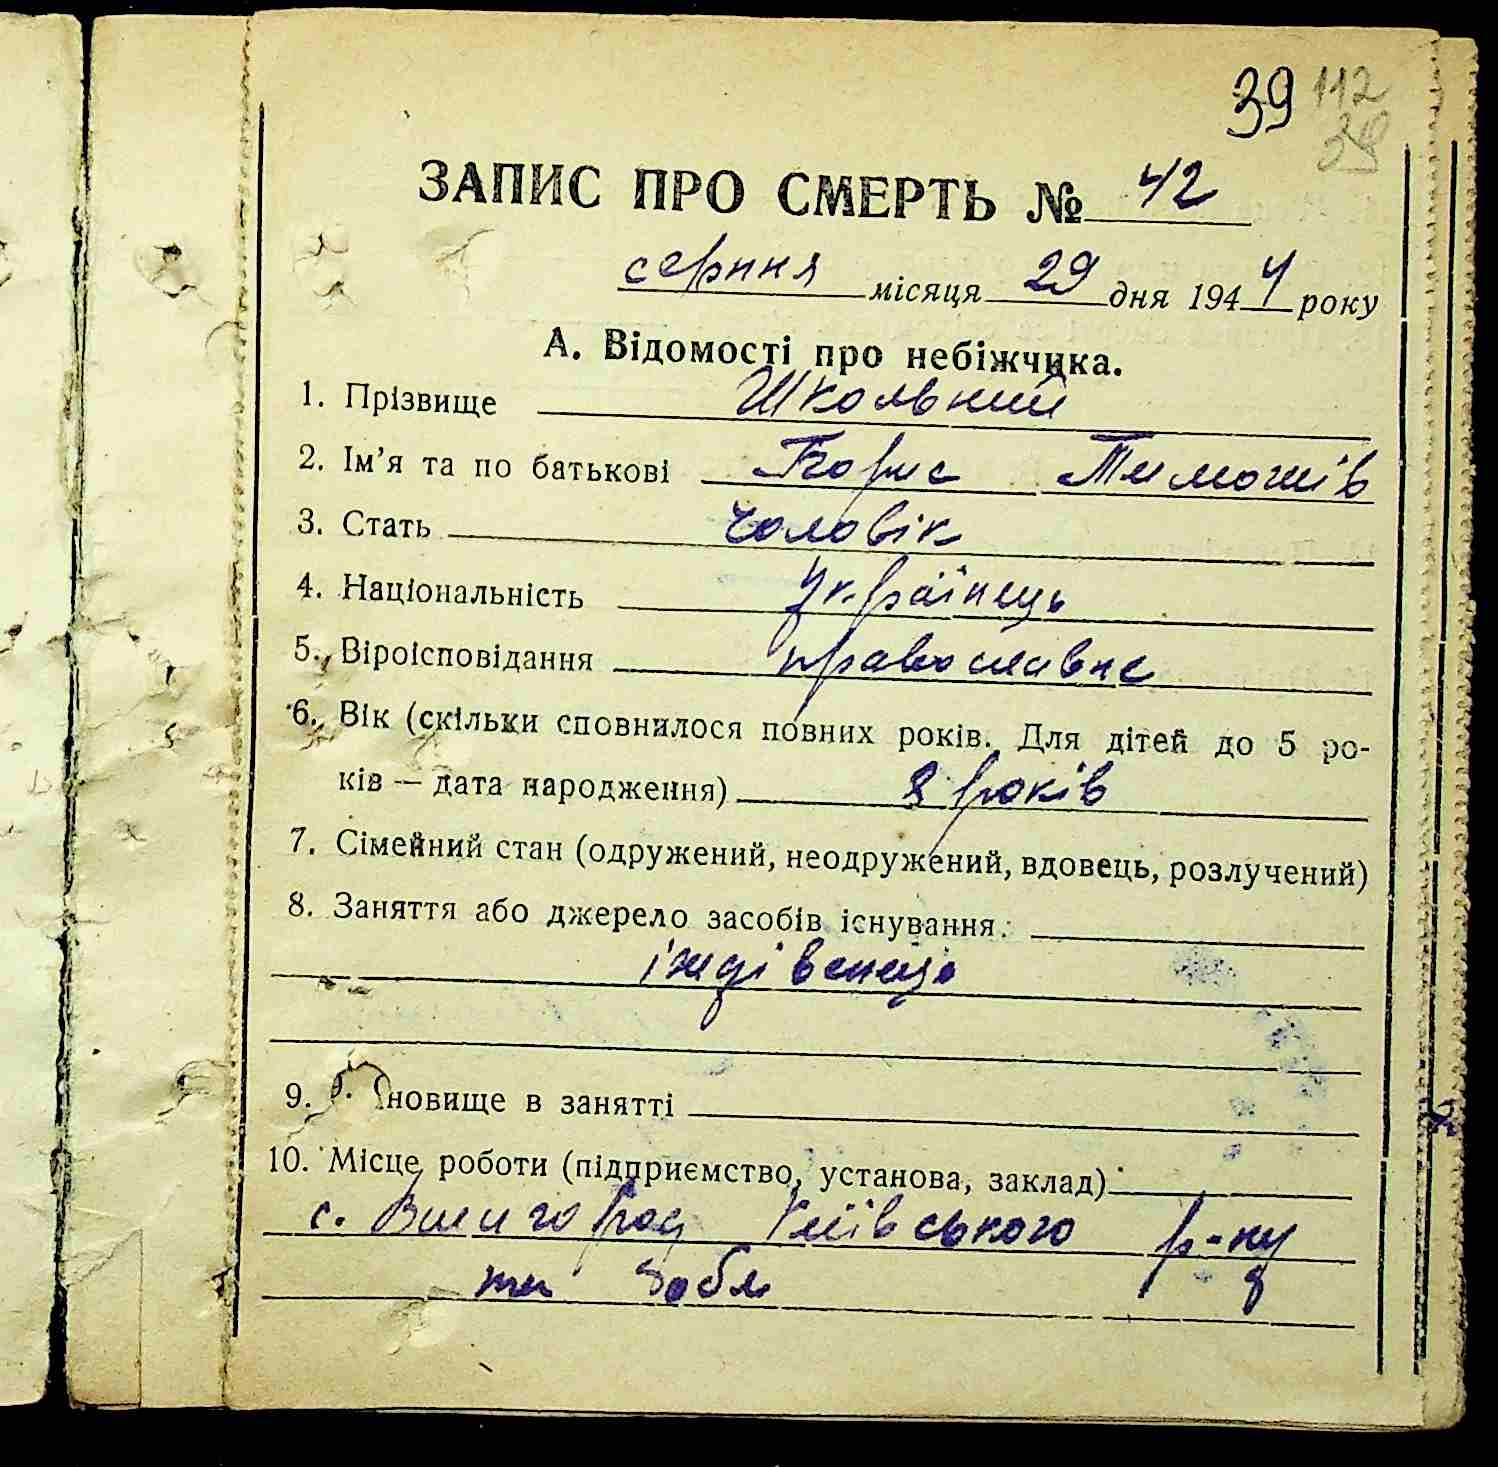 39 112
39
ЗАПИС ПРО СМЕРТЬ № 42
серпня місяця 29 дня 1944 року
А. Відомості про небіжчика.
1. Прізвище Школьний
2. Ім’я та по батькові Борис Тимошів
3. Стать чоловік
4. Національність Українець
5. Віроісповідання православне
6. Вік (скільки сповнилося повних років. Для дітей до 5 ро-
ків — дата народження) 8 років
7. Сімейний стан (одружений, неодружений, вдовець, розлучений)
8. Заняття або джерело засобів існування:
іждівенець
9. новище в занятті
10. Місце роботи (підприємство, установа, заклад)
с. Вишгород Київського р-ну
та обл